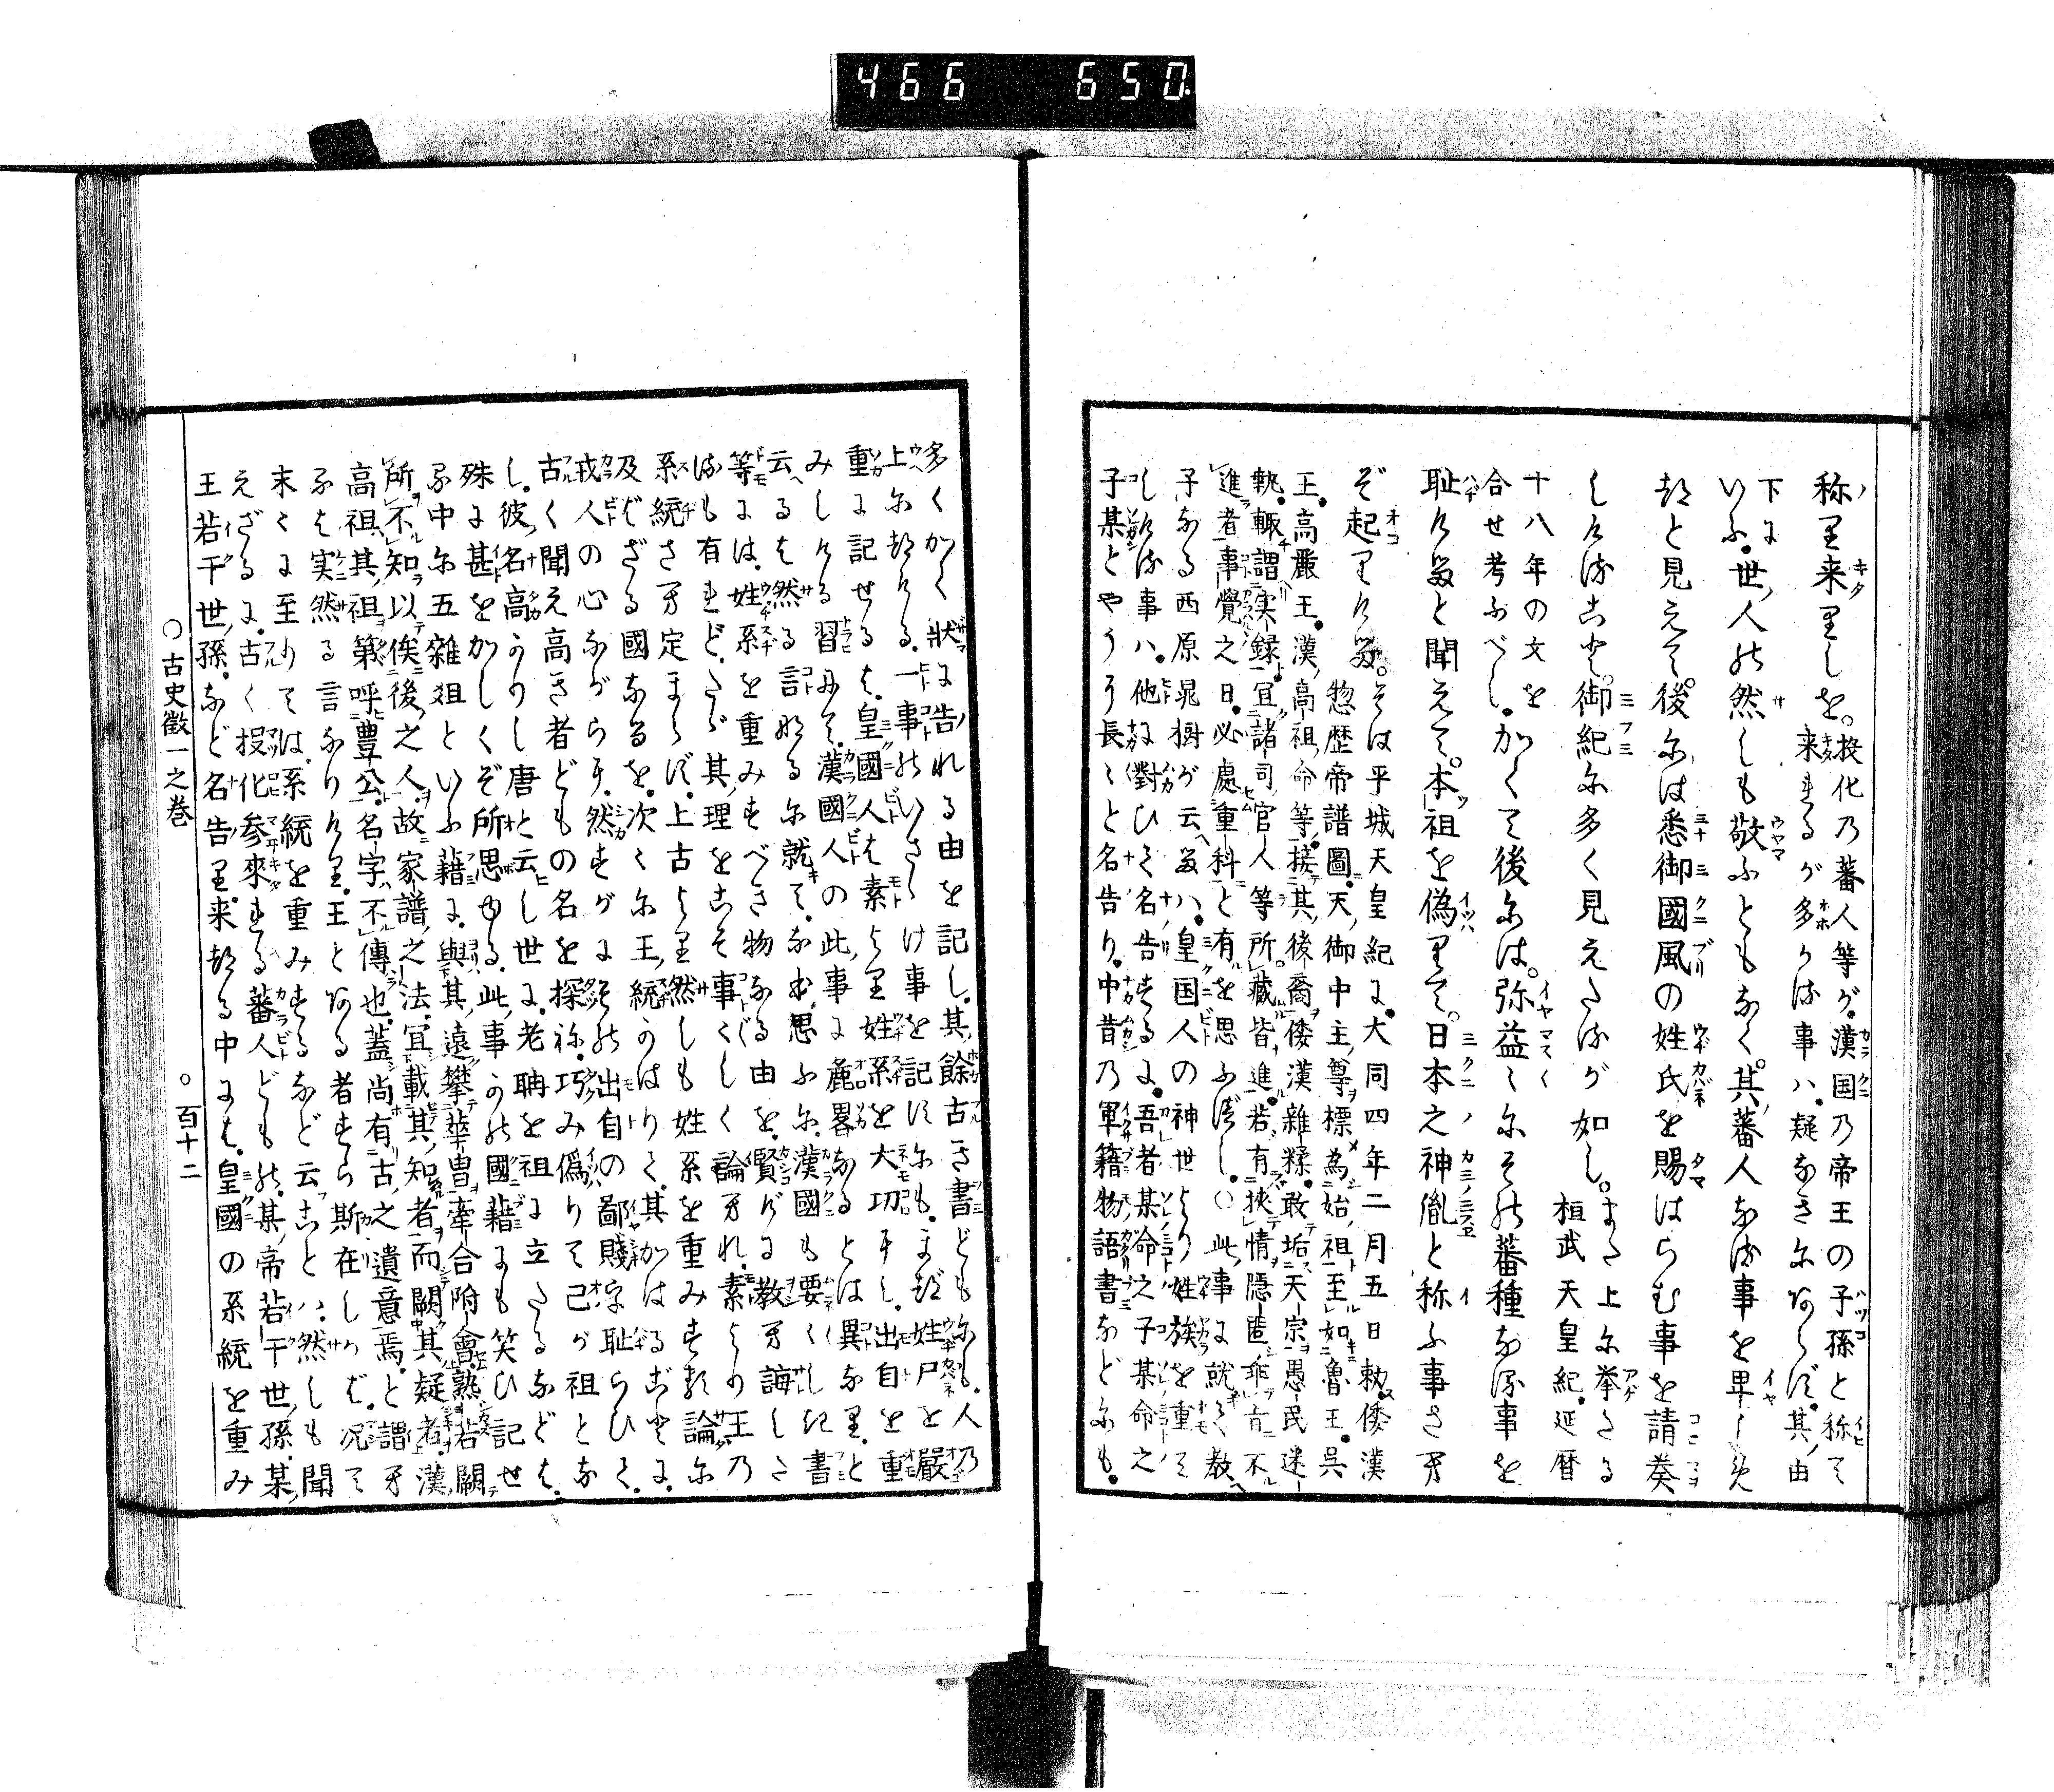 466 650
称里来里しを。投化乃蕃人等が。漢国乃帝王の子孫と称て
来るが多かる事ハ。疑なきに非らず。其由
下に
いふ。世人の然しも敬ふともなく。其蕃人なる事を卑しめ
見えて。後には悉御國風の姓氏を賜はらむ事を請奏
しける。御紀に多く見えたるが如し。また上に挙たる
桓武天皇紀。延暦
十八年の文を
合せ考ふべし。かくて後には。弥益々にその蕃種なる事を
恥けると聞えて。本祖を偽りて。日本之神胤と称ふ事さへ
ぞ起りける。そは平城天皇紀に。大同四年二月五日敕。倭漢
惣歴帝譜圖。天御中主尊標為始祖。至如魯王。呉
王。高麗王。漢高祖命等。接其後裔。倭漢雜糅。敢垢天宗。愚民迷
執。輙謂実録。宜諸司官人等所藏皆進。若有挾情隠匿。乖旨不
進者。事覺之日。必處重科と有を思ふべし。○此事に就て教
子なる西原晁樹が云へるハ。皇国人の神世より姓族を重て
しける事ハ。他に對ひて名告するに。吾者某命之子某命之
子某とやうに長々と名告り。中昔乃軍籍物語書などにも。
多くかく状に告れる由を記し。其餘古き書どもにも。人乃
上に。一事のいささけ事を記すにも。まづ姓尸と嚴
重に記せるは。皇國人は素より姓系を大切にし。出自を重
みしける習にて。漢國人の此事に麁畧なるとは異なりと
云へるは然る言なるに就て。なほ思ふに。漢國も要くしき書
等には。姓系を重みすべき物なる由を。賢げに教へ誨しさ
も有れど。其理をこそ事々しく論ひすれ。素よりの王乃
系統さへ定まらず。上古より然しも姓系を重みする論に
及ばざる國なるを。次々に王統のはりて。其かはるごとに。
戎人の心ながらに。然すがにその出自の鄙賤字恥らひて。
古く聞え高き者どもの名を探ね。巧み偽りて己が祖とな
し。彼名高かりし唐と云し世に。老聃を祖に立たるなどは。
殊に甚をかしくぞ所思ゆる。此事かの國籍にも笑ひ記せ
る中に五雜俎といふ籍に。與其遠攀華冑牽合附會。熟若闕
所不知以俟後之人。故家譜之法。宜載其知者。而闕其疑者。漢
高祖。其祖第呼豊公。名字不傳也。蓋尚有古之遺意焉。と謂へ
るは実然る言なりけり。王とある者すら斯在しかば。況て
末々に至りては。系統を重みするなど云ことハ。然しも聞
えざるに。古く投化参來れる蕃人どもの。某帝若干世孫某。
王若干世孫など名告里来ける中にも。皇國の系統を重み
○古史徴一之巻
○百十二